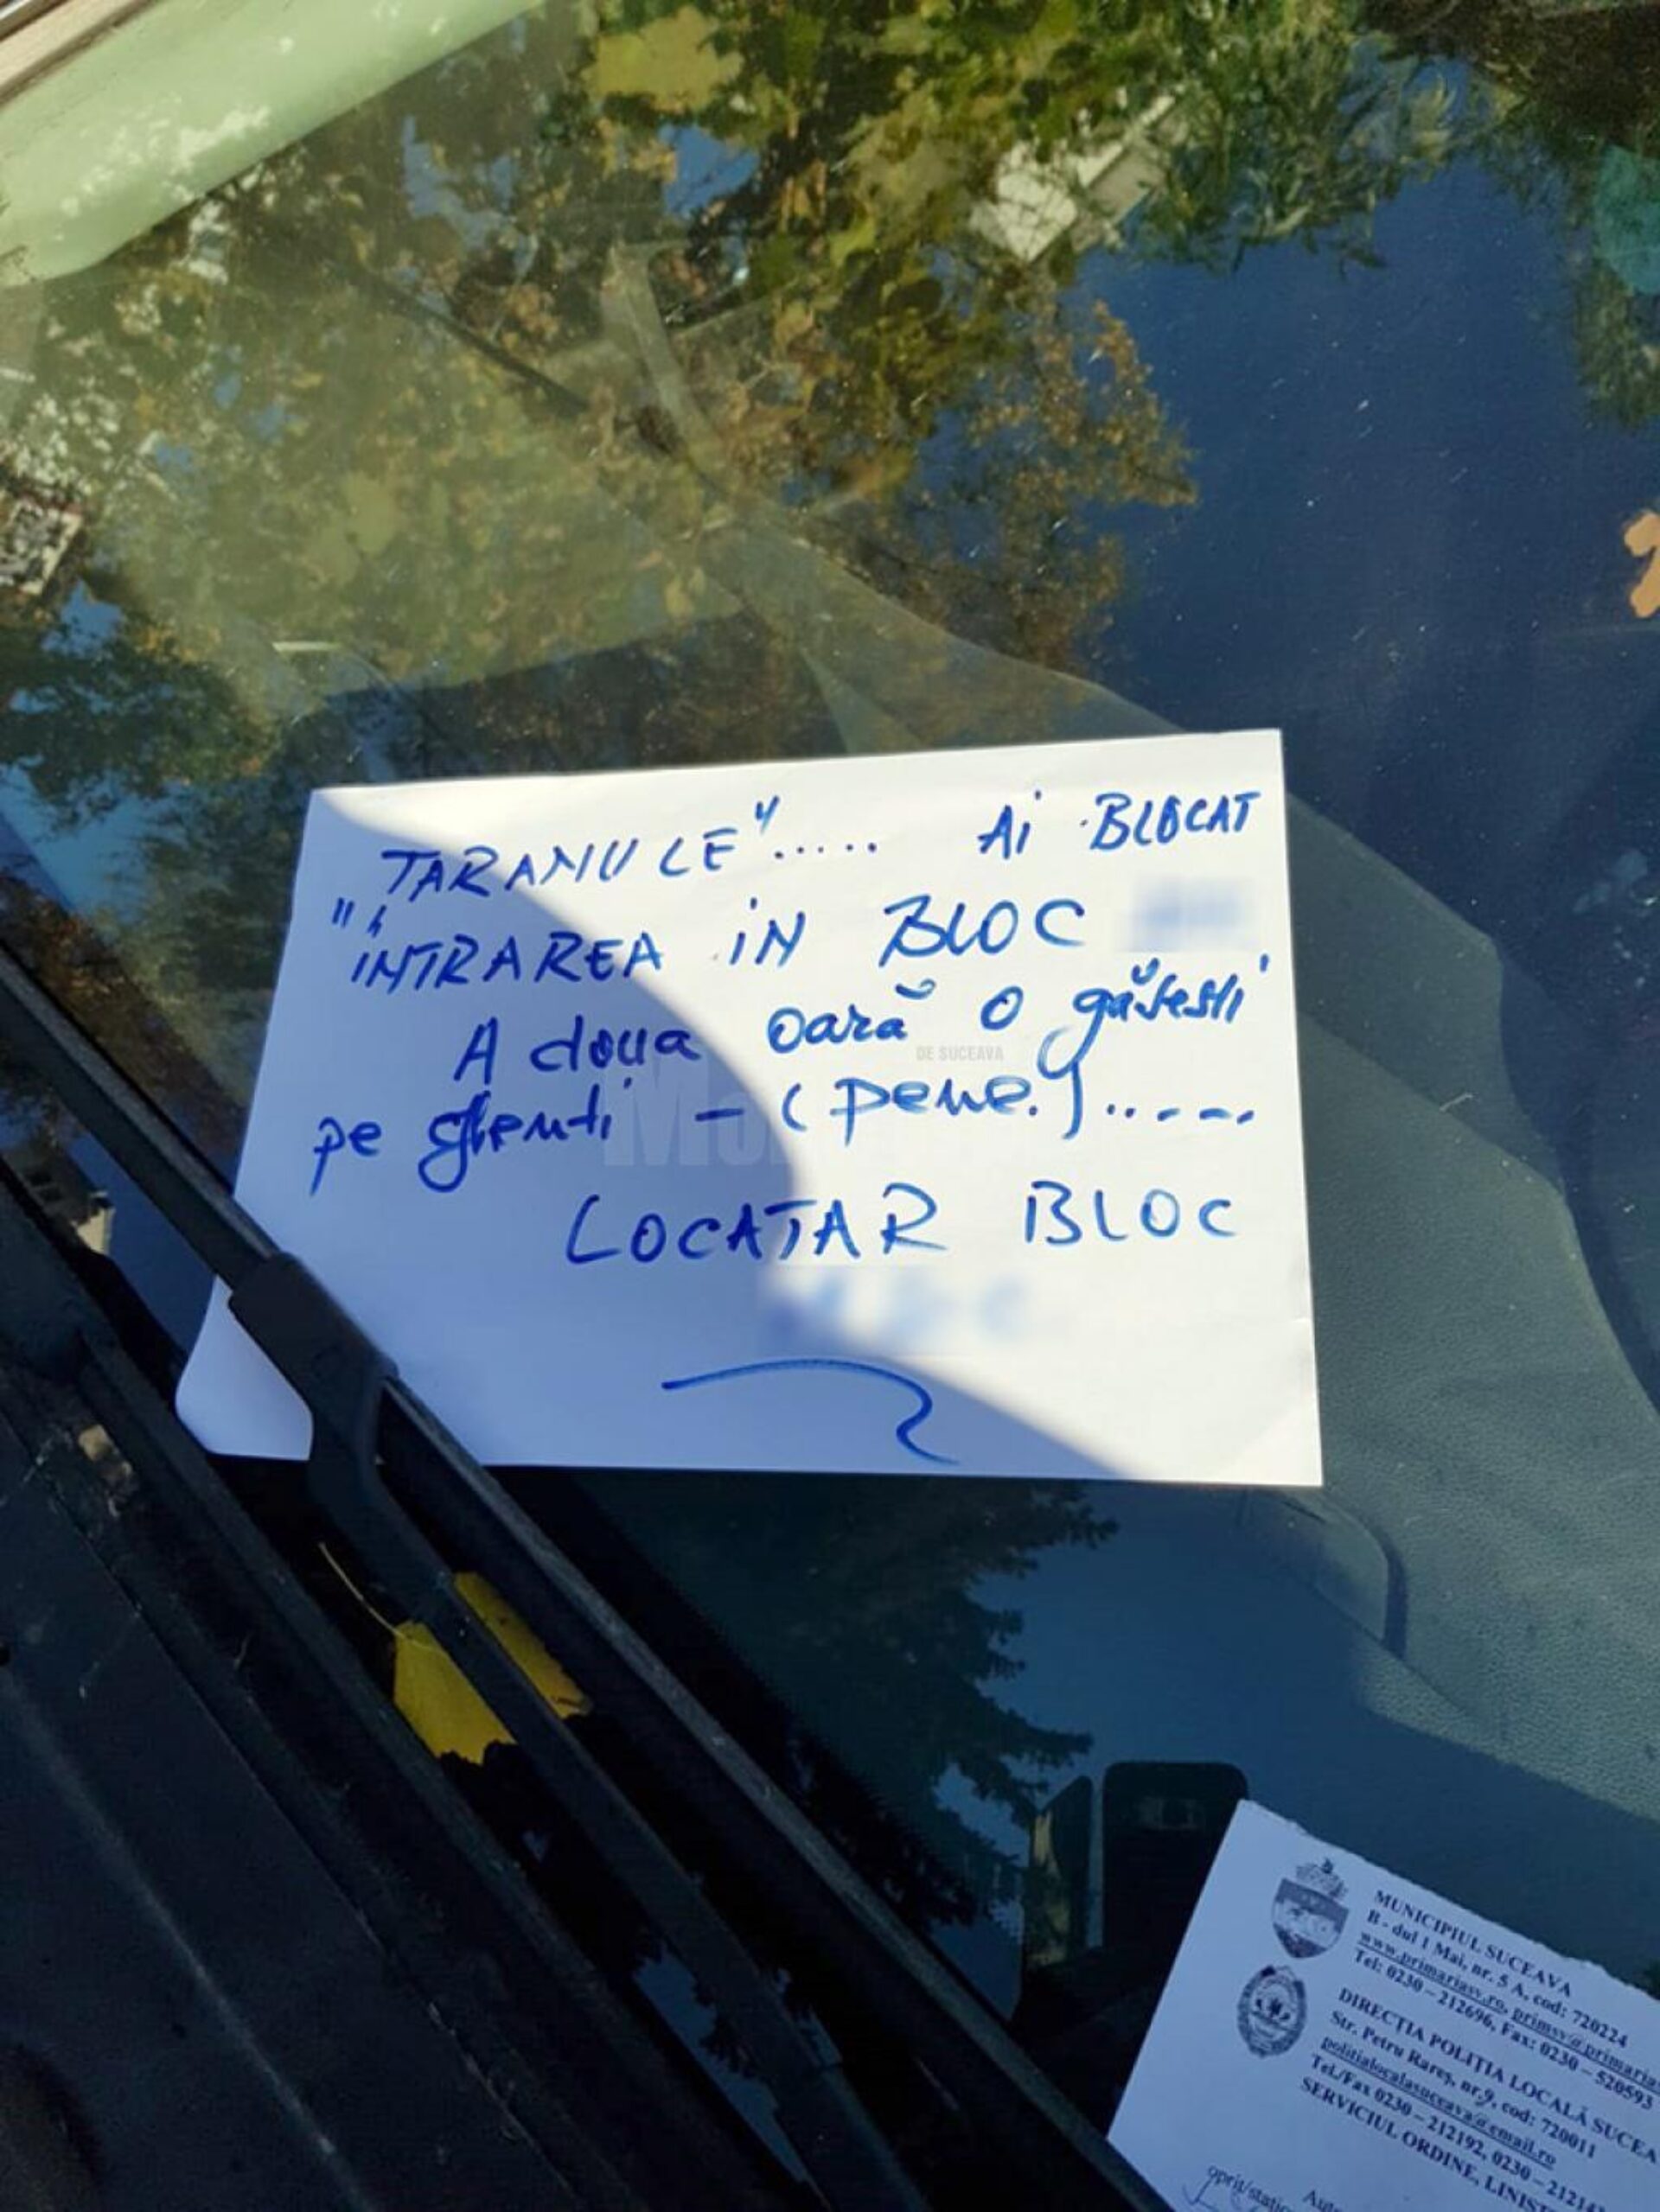 "TARANULE"..... Ai BLOCAT
INTRAREA iN BLOC
A doua oară o găsesti
pe gjenti - (pene.).....
LOCATAR BLOC
DE SUCEAVA
MUNICIPIUL SUCEAVA
B - dul 1 Mai, nr. 5 A, cod: 720224
www.primariasv.ro, primsv@primarias
Tel: 0230 – 212696, Fax: 0230 – 520593
DIRECȚIA POLIȚIA LOCALĂ SUCEA
Str. Petru Rareș, nr.9, cod: 720011
politialocalasuceava@email.ro
Tel./Fax 0230 – 212192, 0230 – 2121
SERVICIUL ORDINE, LINIȘT
oprit/stațio
Auto